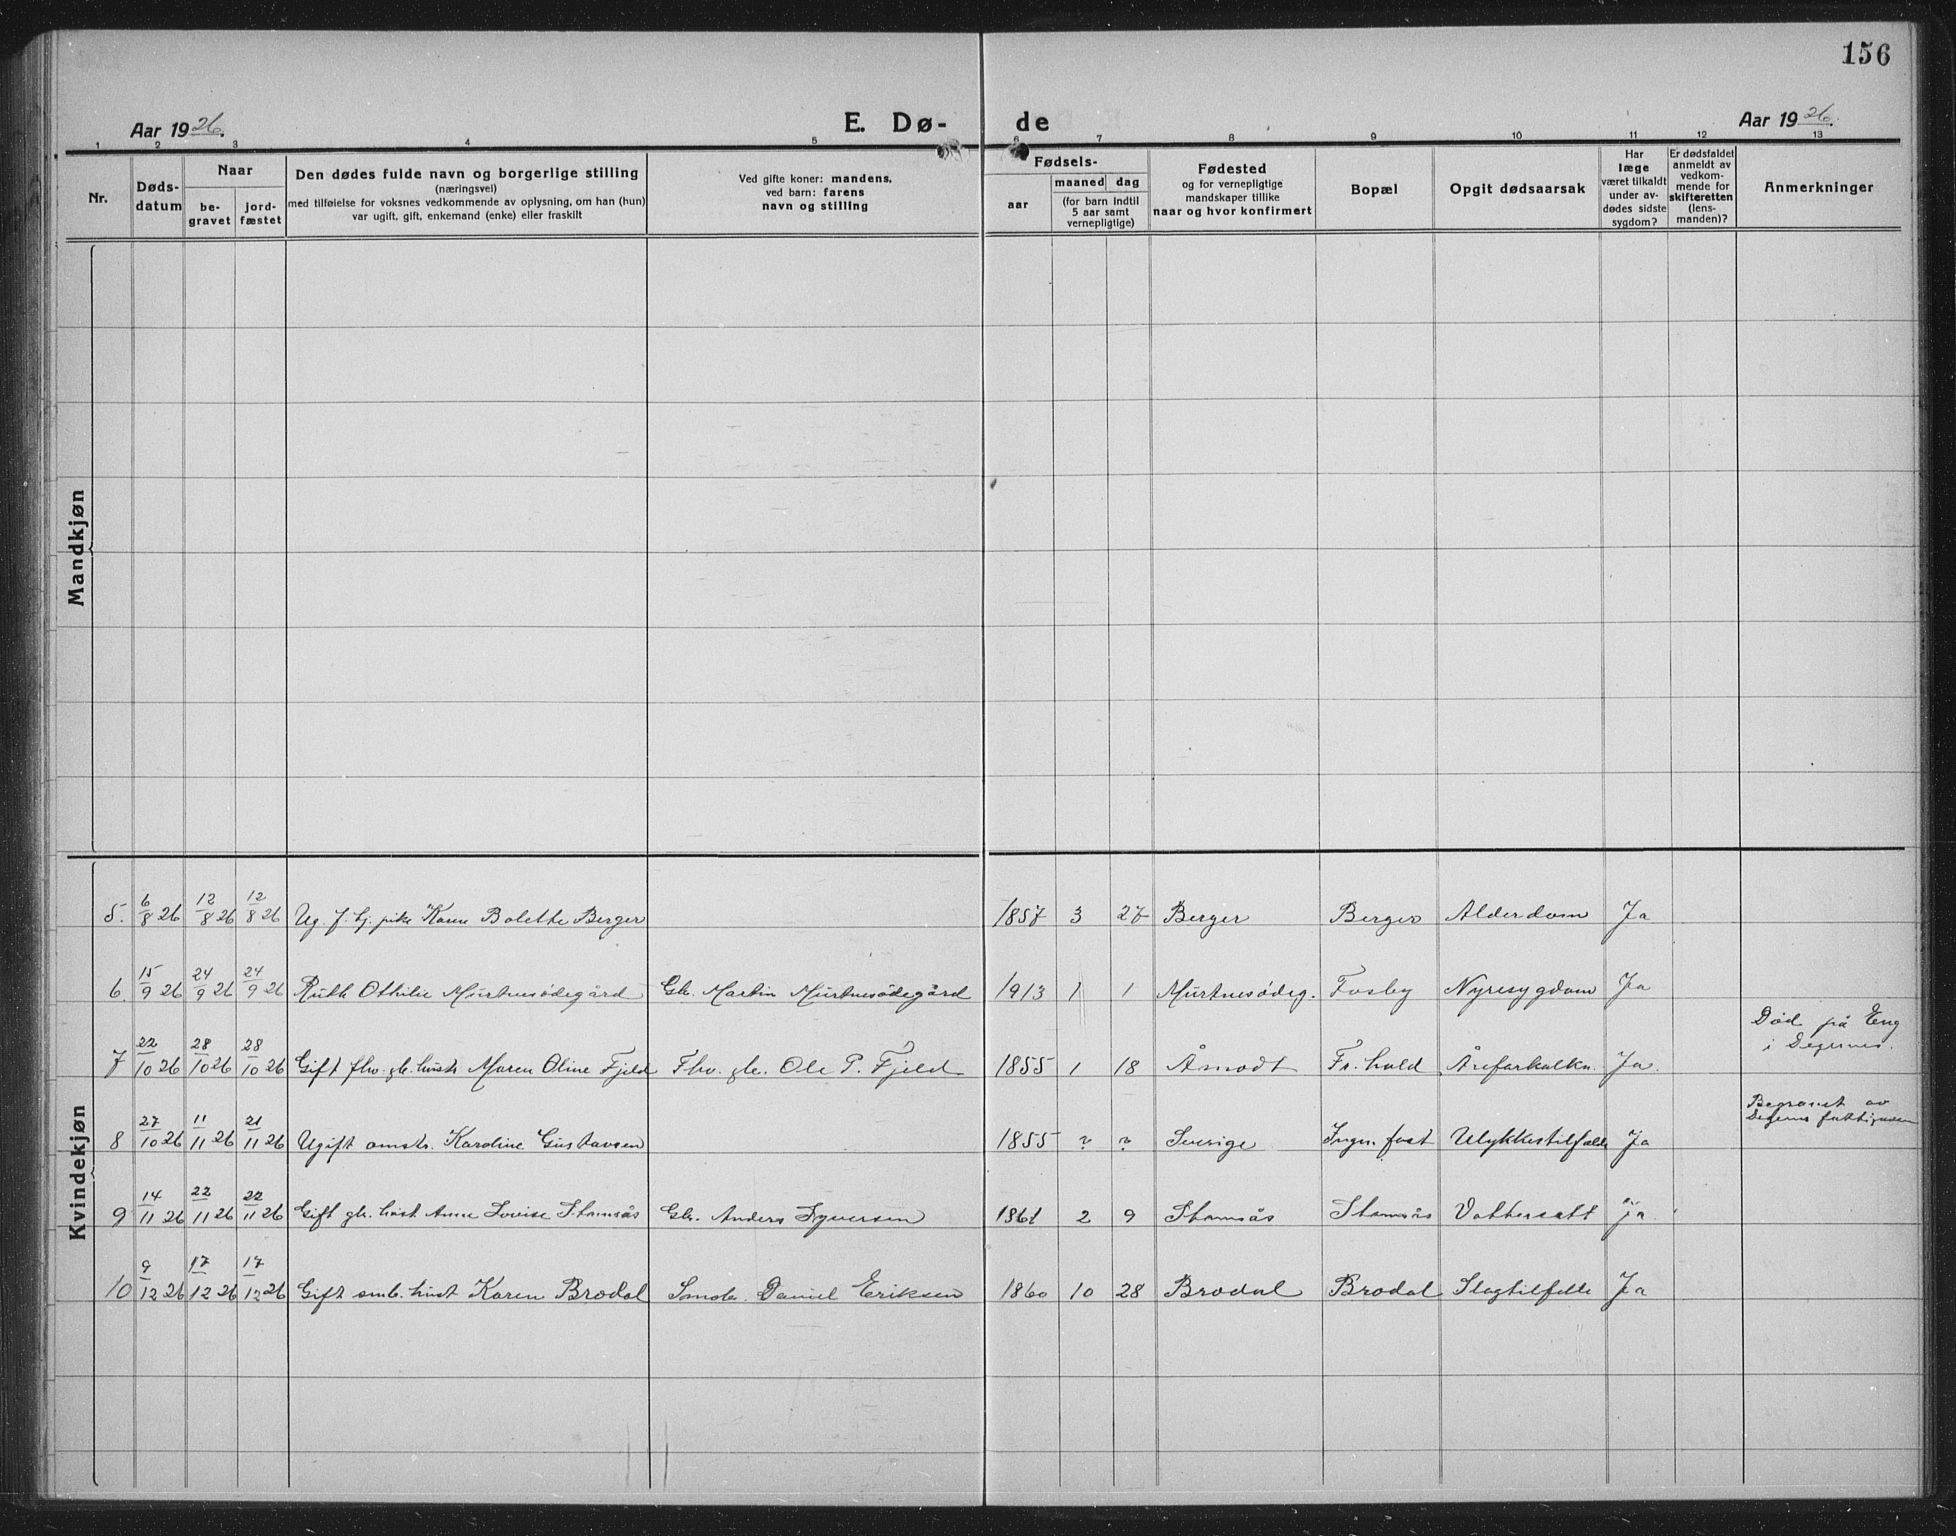 156
Aar 1926.
E. Dø-
de
Aar 1926.
1 2 3 4 5 6 7 8 9 10 11 12 13
Nr.
Døds-
datum
Naar
be-
gravet
jord-
fæstet
Den dødes fulde navn og borgerlige stilling
(næringsvei)
med tilføielse for voksnes vedkommende av oplysning, om han (hun)
var ugift, gift, enkemand (enke) eller fraskilt
Ved gifte koner: mandens,
ved barn: farens
navn og stilling
Fødsels-
aar
maaned dag
(for barn indtil
5 aar samt
vernepligtige)
Fødested
og for vernepligtige
mandskaper tillike
naar og hvor konfirmert
Bopæl
Opgit dødsaarsak
Har
læge
været tilkaldt
under av-
dødes sidste
sygdom?
Er dødsfaldet
anmeldt av
vedkom-
mende for
skifteretten
(lens-
manden)?
Anmerkninger
Mandkjøn
Kvindekjøn
5. 6/8 26 12/8 26 12/8 26 Ug. f. tj. pike Karen Bolette Berger 1857 3 27 Berger Berger Alderdom Ja
6. 15/9 26 24/9 26 24/9 26 Ruth Othilie Murtnesødegård Gb. Martin Murtnesødegård 1913 1 1 Murtnesødeg. Fosby Nyresygdom Ja
7 22/10 26 28/10 26 28/10 26 Gift fhv. gb. hustr. Maren Oline Fjeld Fhv. gb. Ole P. Fjeld 1855 1 18 Åmodt Fr. hald Åreforkalkn. Ja. Død på Eng
i Degernes.
8 27/10 26 11/11 26 21/11 26 Ugift omstr. Karoline Gustavsen 1855 ? ? Sverige Ingen fast Ulykkestilfælde Ja Begravet av
Degernes fattigvæsen
9 14/11 26 22/11 26 22/11 26 Gift gb. hust Anne Lovise Stomsås Gb. Anders Syversen 1861 2 9 Stomsås Stomsås Vattersott Ja.
10 9/12 26 17/12 26 17/12 26 Gift smb. hust Karen Brodal Smbr. Daniel Eriksen 1860 10 28 Brodal Brodal Slagtilfelle Ja